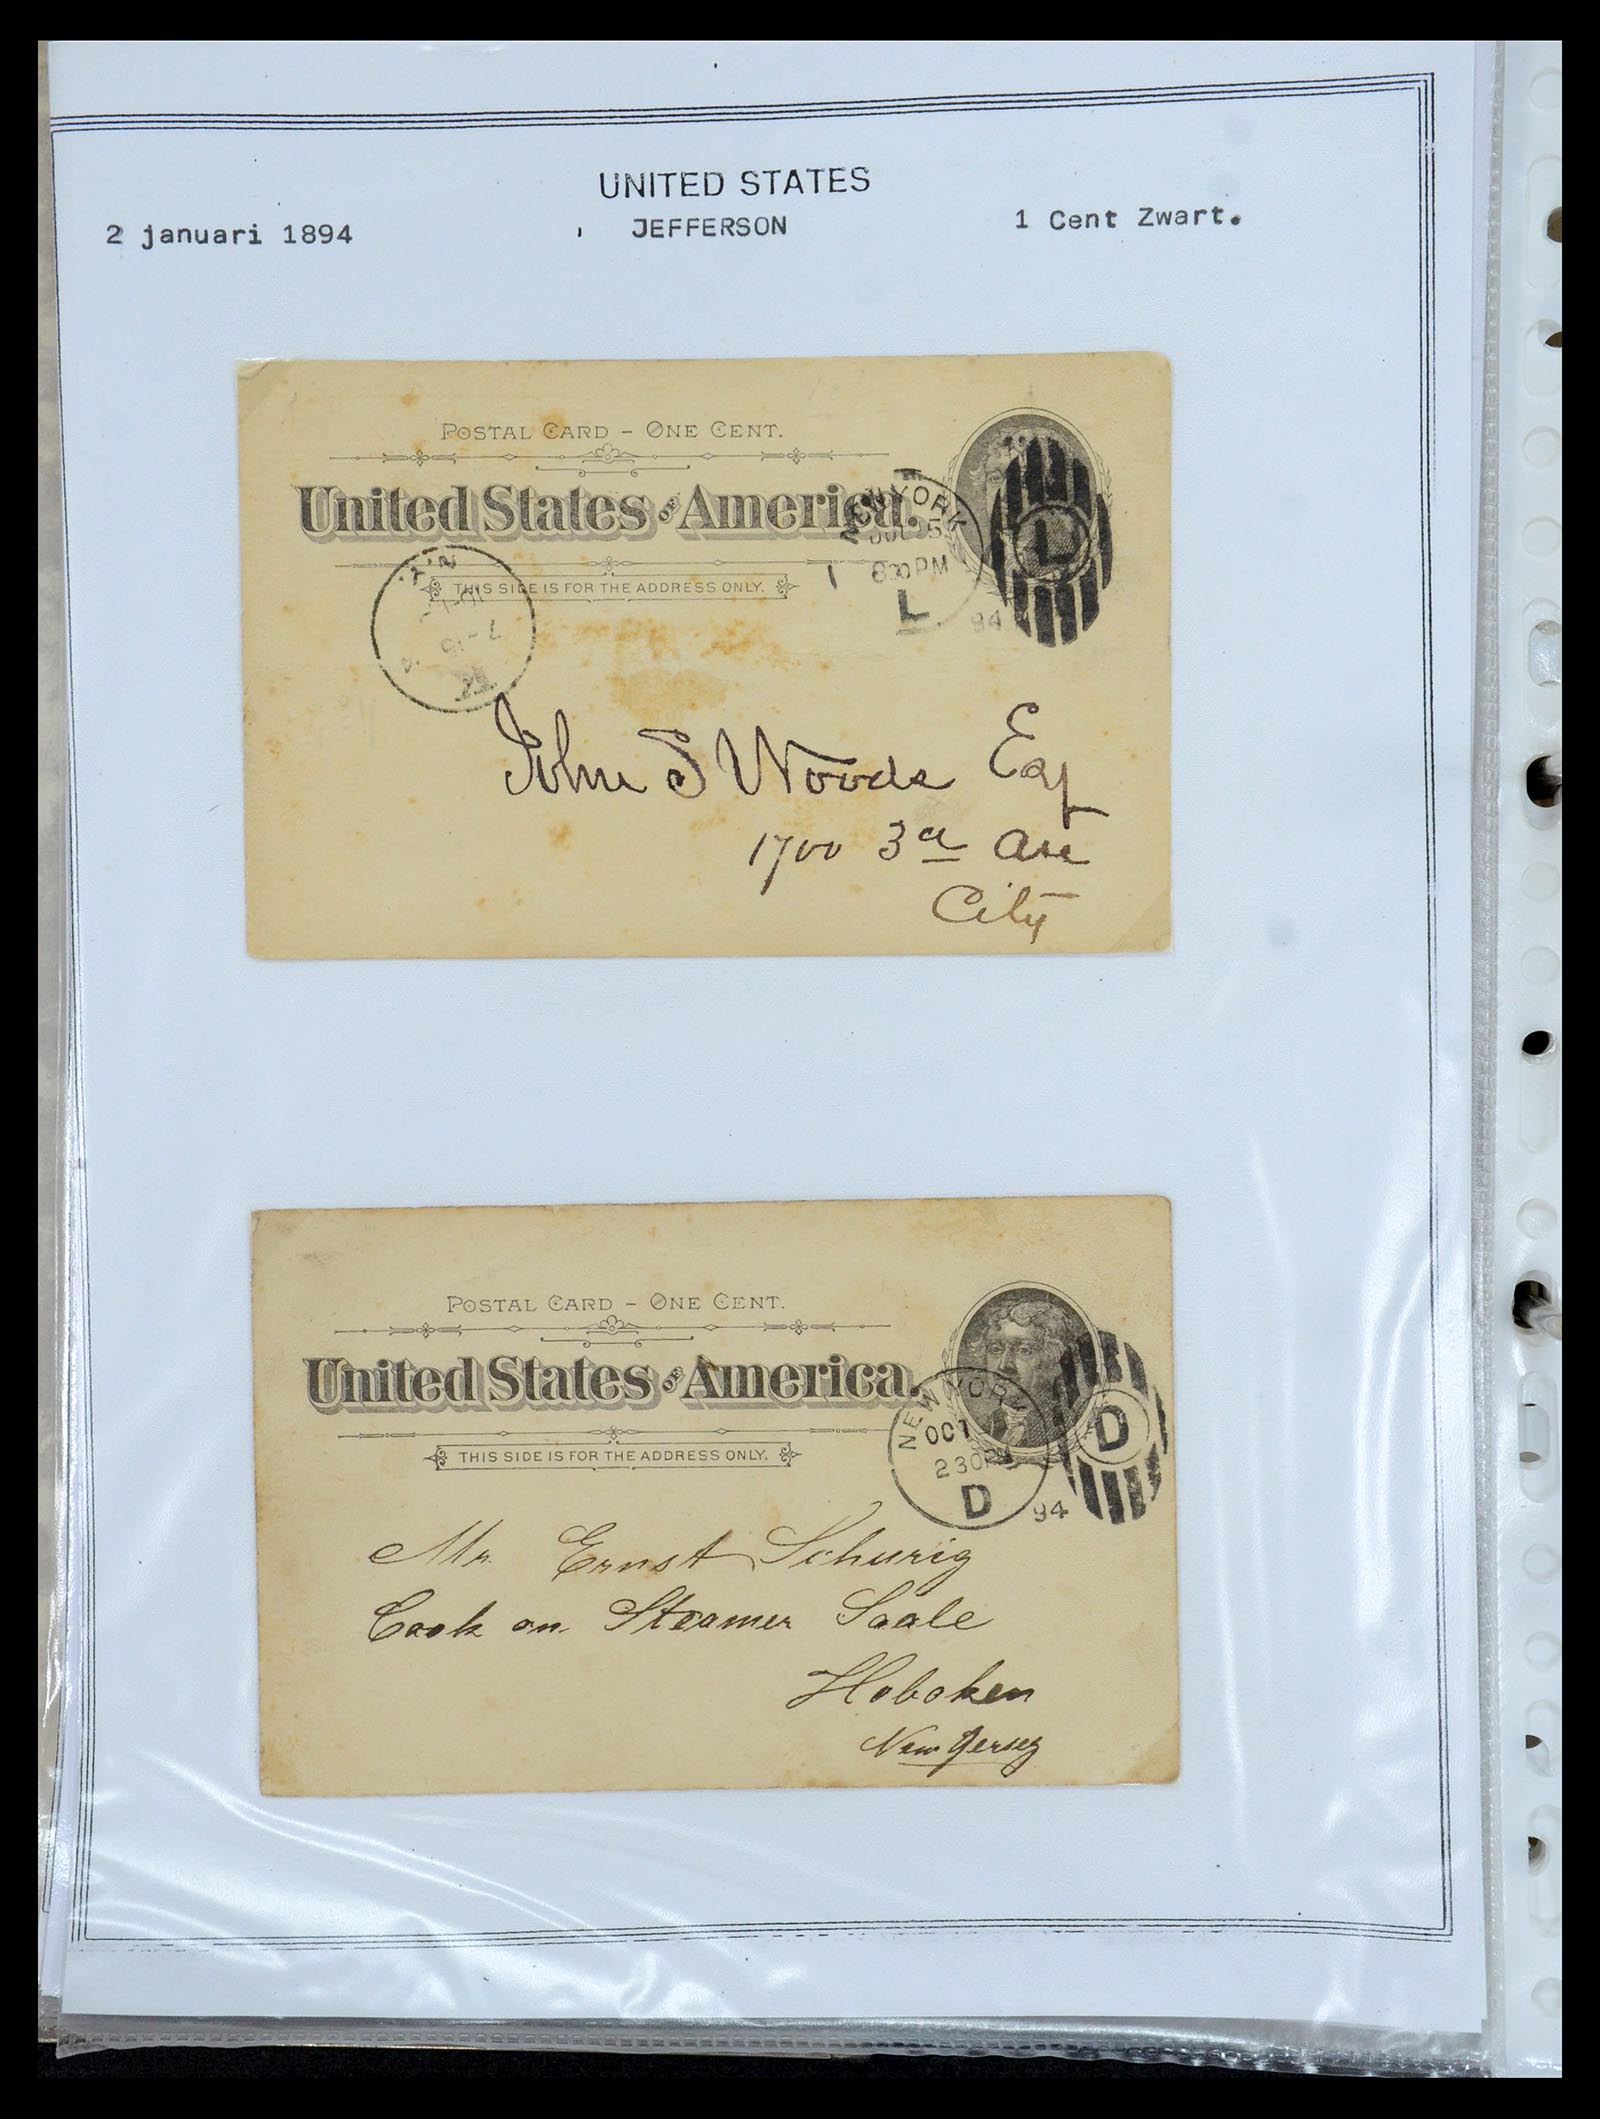 UNITED STATES
2 januari 1894 JEFFERSON 1 Cent Zwart.
POSTAL CARD - ONE CENT.
United States OF America.
THIS SIDE IS FOR THE ADDRESS ONLY.
NEW YORK
JUL 5
800PM
L
94
L
N.Y.
John S Woods Esq
1700 3d Ave
City
POSTAL CARD - ONE CENT.
United States OF America.
THIS SIDE IS FOR THE ADDRESS ONLY.
NEW YORK
OCT
230PM
D
94
D
Mr. Ernst Schurig
Cook on Steamer Saale
Hoboken
New Jersey